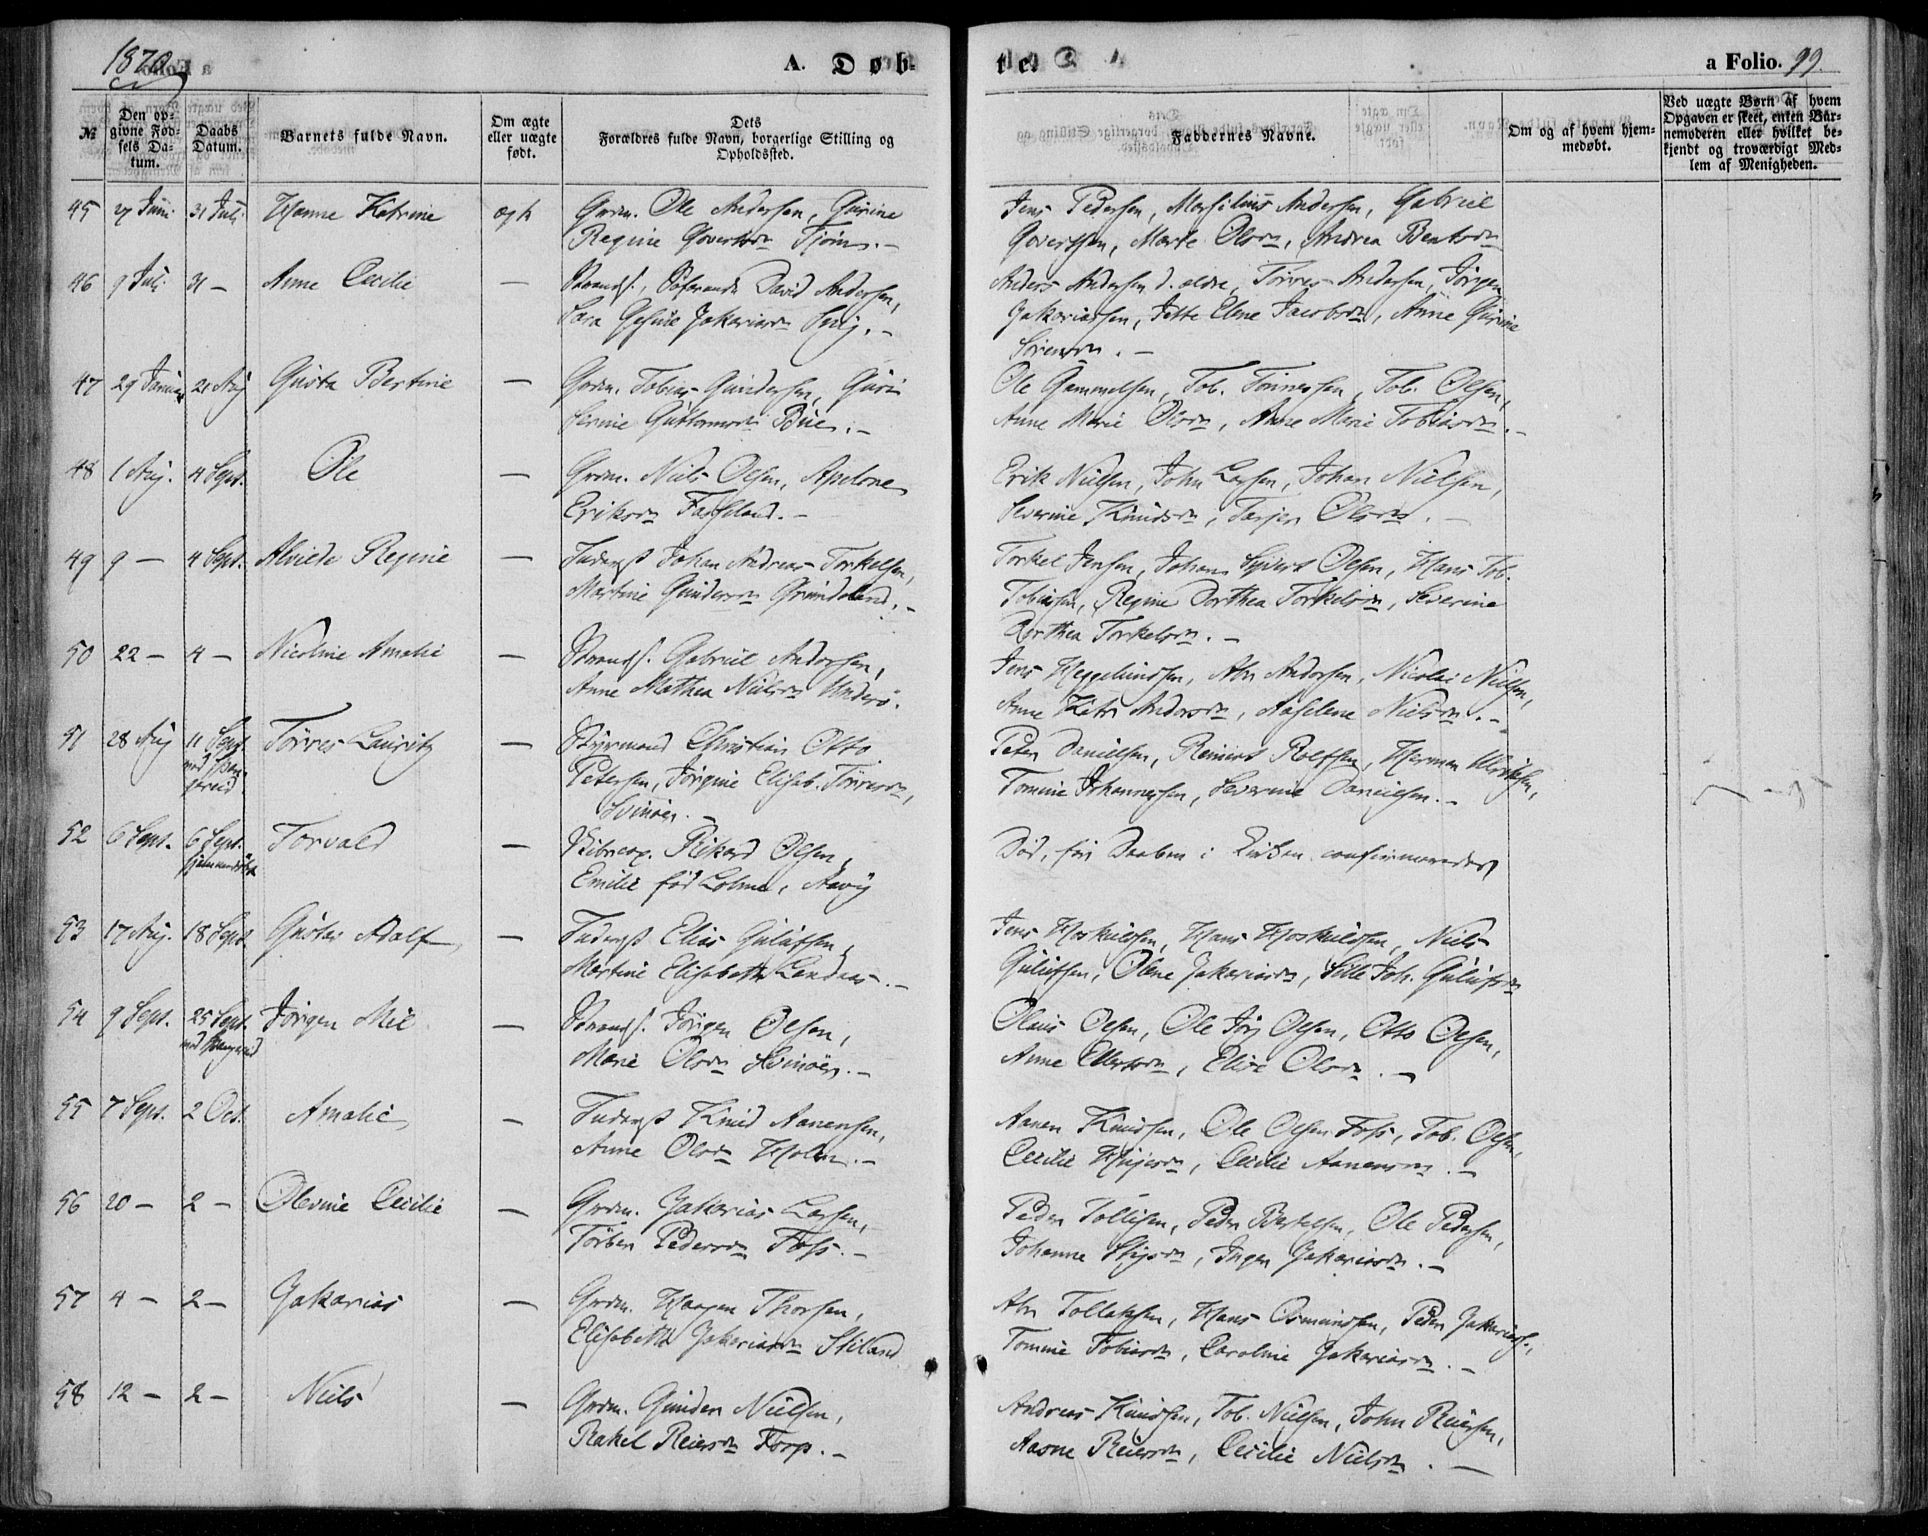 1870
A. Døb-
te.
a Folio. 99.
№
Den op-
givne Fød-
sels Da-
tum.
Daabs
Datum.
Barnets fulde Navn.
Om ægte
eller uægte
født.
Dets
Forældres fulde Navn, borgerlige Stilling og
Opholdssted.
Faddernes Navne.
Om og af hvem hjem-
medøbt.
Ved uægte Børn af hvem
Opgaven er skeet, enten Bar-
nemoderen eller hvilket be-
kjendt og troværdigt Med-
lem af Menigheden.
45 27 Juni 31 Juli Hanne Katrine ægte Grdm. Ole Andersen, Gurine
Regine Govertsdr Tjöm. —
Jens Pedersen, Marsilius Andersen, Gabriel
Govertsen, Marte Olsdr, Andrea Bentsdr
46 9 Juli 31 — Anne Cecilie — Strands., Söfarende David Andersen,
Sara Gesine Zakariasdr —
Anders Andersen d. ældre, Törres Andersen, Jörgen
Zakariassen, Jette Elene Jacobsdr, Anne Gurine
Sörensdr. —
47 29 Juni 21 Aug Gusta Bertine — Grdm. Tobias Gundersen, Guri
Serine Guttormsdr Bue. —
Ole Gammelsen, Tob. Tönnessen, Tob. Olsen,
Anne Marie Olsdr, Anne Marie Tobiasdr. —
48 1 Aug. 4 Sept. Ole — Grdm. Niels Olsen, Apelone
Eriksdr Fasseland. —
Erik Nielsen, John Larsen, Johan Nielsen,
Severine Knudsdr, Tarjer Olsdr. —
49 9 — 4 Sept. Alvilde Regine — Inderst Johan Andreas Torkelsen,
Martine Gundersdr Grundeland. —
Torkel Jensen, Johan Sivert Olsen, Hans Tob.
Tobiassen, Regine Dorthea Torkelsdr, Severine
Dorthea Torkelsdr. —
50 22 — 4 — Nicoline Amalie — Strands. Gabriel Andersen,
Anne Mathea Nielsdr Underö.
Jens Heggelundsen, Abr Andersen, Nicolai Nielsen,
Anne Katr Andersdr, Aaselene Nielsdr. —
51 28 Aug 11 Sept Törres Lauritz — Styrmand Christian Otto
Petersen, Jörgine Elisab. Törresdr,
Svinöer. —
Peter Danielsen, Reinert Rolfsen, Herman
Tomine Johannessen, Severine Danielsen. —
52 6 Sept. 6 Sept. Torvald —
hjemmedöbt
Skibscap. Rikard Olsen,
Emilie född Aavig
Död, för Daaben i Kirken confirmeredes
53 17 Aug. 18 Sept. Gustav Adolf — Inderst Elias Gulufsen,
Martine Elisabeth Landaas. —
Jens Hoskuldsen, Hans Hoskuldsen, Niels
Gulufsen, Olene Zakariasdr, Sille Joh. Gulufsdr
54 9 Sept. 25 Sept. Jörgen — Strands. Jörgen Olsen,
Marie Olsdr Svinöer. —
Olaus Olsen, Ole Jörg Olsen, Otto Olsen,
Anne Ellertsdr, Elise Olsdr. —
55 7 Sept. 2 Oct. Amalie — Inderst Knud Aanensen,
Anne Olsdr Holm. —
Aanen Knudsen, Ole Olsen Foss, Tob. Olsen,
Cecilie Cecilie Aanensdr. —
56 20 — 2 — Olevine Cecilie — Grdm. Zakarias Larsen,
Törber Pedersdr Foss. —
Peder Tollisen, Peder Bertelsen, Ole Pedersen,
Johanne Stigsdr, Inger Zakariasdr. —
57 4 — 2 — Zakarias — Grdm. Haagen Thorsen,
Elisabeth Zakariasdr Stiland
Abr Tollaksen, Hans Osmundsen, Peder Zakarias.,
Tomine Tobiasdr, Caroline Zakariasdr. —
58 12 — 2 — Niels — Grdm. Gunder Nielsen,
Rakel Reiersdr Torp. —
Andreas Knudsen, Tob. Nielsen, John Reiersen,
Aasne Reiersdr, Cecilie Nielsdr. —